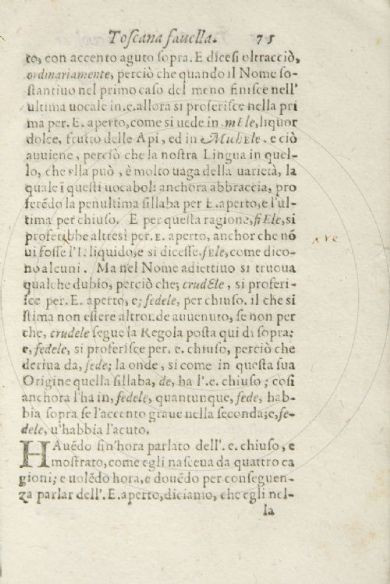 Toscana fauella. 75
to, con accento aguto sopra. E dicesi oltracciò,
ordinariamente, perciò che quando il Nome so-
stantiuo nel primo caso del meno finisce nell'
ultima uocale in .e. allora si proferisce nella pri
ma per. E. aperto, come si uede in mEle, liquor
dolce, frutto delle Api, ed in MichEle. e ciò
auuiene, perciò che la nostra Lingua in quel-
lo, che ella può, è molto uaga della uarietà, la
quale ĩ questi uocaboli anchora abbraccia, pro
ferẽdo la penultima sillaba per E. aperto, e l'ul-
tima per chiuso. E per questa ragione, fiEle, si
proferebbe altresì per. E. aperto, anchor che nõ
ui fosse l'I. liquido, e si dicesse, fEle, come dico-
no alcuni. Ma nel Nome adiettiuo si truoua
qualche dubio, perciò che; crudEle, si proferi-
sce per. E. aperto, e; fedele, per chiuso. il che si
stima non essere altrõde auuenuto, se non per
che, crudele segue la Regola posta qui di sopra;
e, fedele, si proferisce per. e. chiuso, perciò che
deriua da, fede; la onde, si come in questa sua
Origine quella sillaba, de, ha l'.e. chiuso; così
anchora l'ha in, fedele, quantunque, fede, hab-
bia sopra se l'accento graue nella seconda; e, fe-
dele, u'habbia l'acuto.
HAuẽdo sin'hora parlato dell'.e. chiuso, e
mostrato, come egli nasceua da quattro ca
gioni; e uolẽdo hora, e douẽdo per conseguen-
za parlar dell'. E. aperto, diciamo, che egli nel-
la